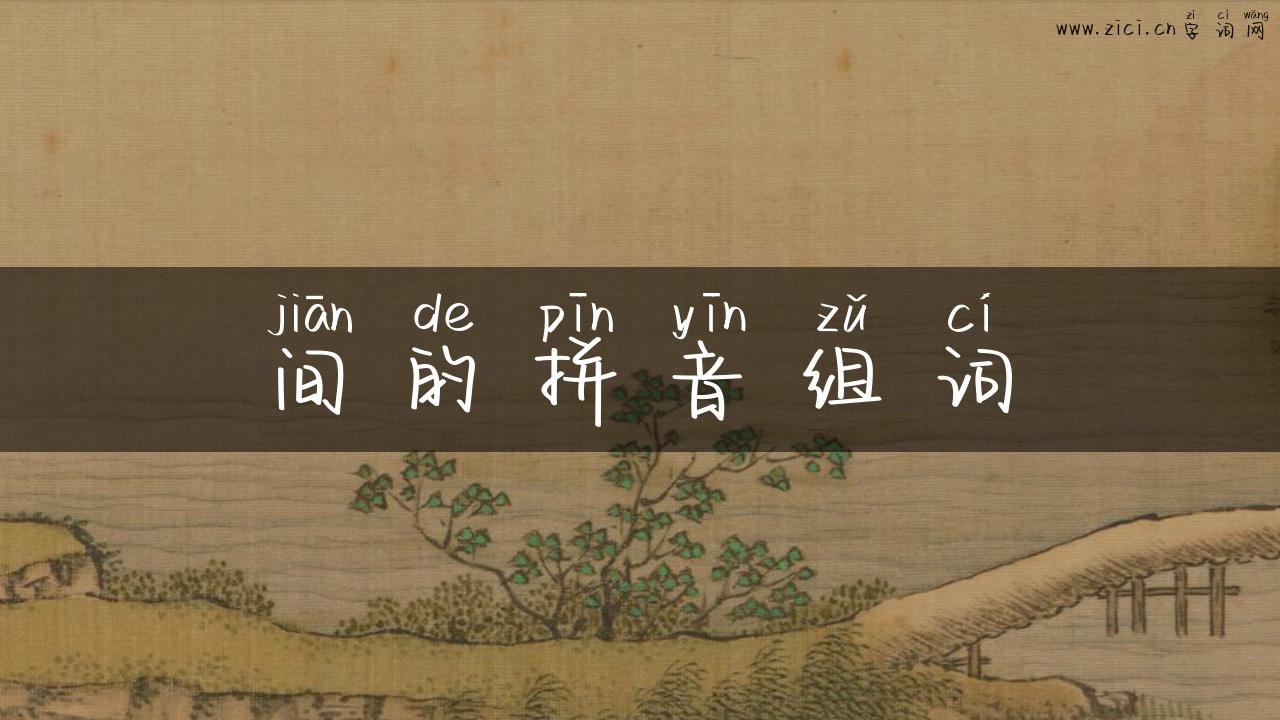 zì cí wǎng
www.zici.cn字词网
jiān de pīn yīn zǔ cí
间的拼音组词